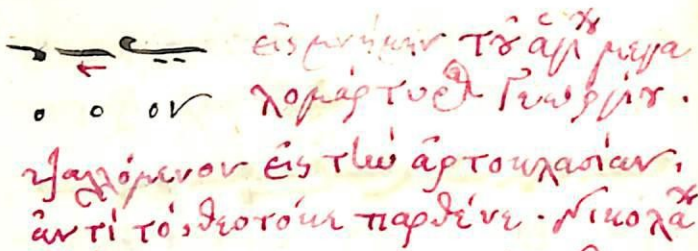 εἰς μνήμην τοῦ ἁγίου μεγα
ο ο ον λομάρτυρος Γεωργίου.
ψαλλόμενον εἰς τὴν ἀρτοκλασίαν,
ἀντὶ τὸ, θεοτόκε παρθένε. Νικολάου